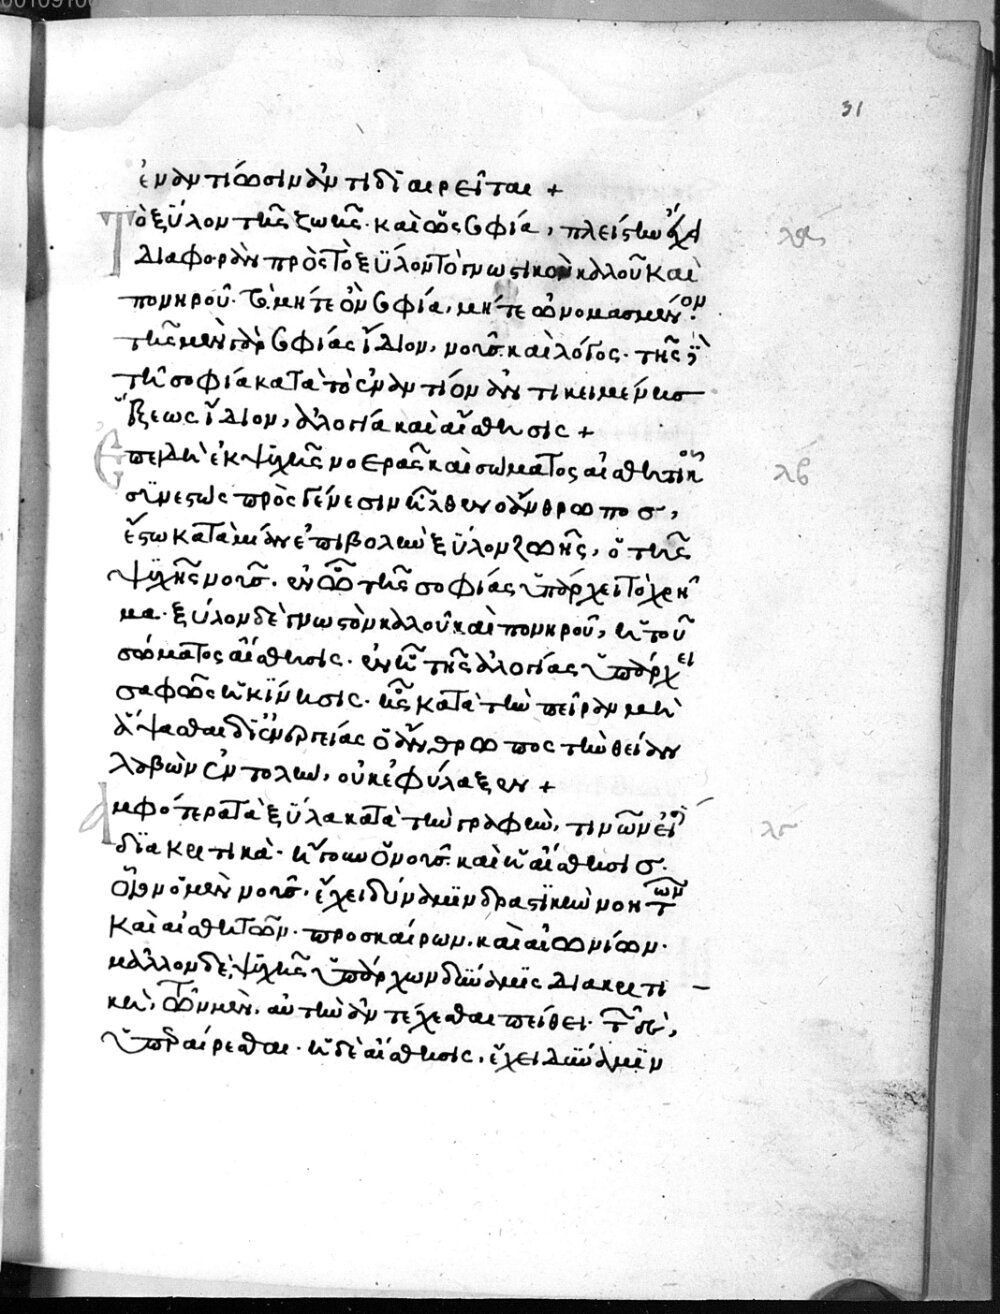 00109100
31
ἐναντίωσιν ἀντιδιαιρεῖται +
Τὸ ξύλον τῆς ζωῆς· καὶ ὡς σοφία, πλείστην ἔχει λα
διαφορὰν πρὸς τὸ ξύλον τὸ γνωστικὸν καλοῦ καὶ
πονηροῦ· τὸ μήτε ὂν σοφία, μήτε ὠνομασμένον·
τῆς μὲν γὰρ σοφίας ἴδιον, νοῦς καὶ λόγος· τῆς δὲ
τῇ σοφία κατὰ τὸ ἐναντίον ἀντικειμένης
ἕξεως ἴδιον, ἀλογία καὶ αἴσθησις +
Ἐπειδὴ ἐκ ψυχῆς νοερᾶς καὶ σώματος αἰσθητικοῦ λβ
συνεστὼς πρὸς γένεσιν ἦλθεν ὁ ἄνθρωπος,
ἔστω κατὰ μίαν ἐπιβολὴν ξύλον ζωῆς, ὁ τῆς
ψυχῆς νοῦς. ἐν ᾧ τῆς σοφίας ὑπάρχει τὸ χρῆ
μα· ξύλον δὲ γνωστὸν καλοῦ καὶ πονηροῦ, ἡ τοῦ
σώματος αἴσθησις· ἐν ᾗ τῆς ἀλογίας ὑπάρχει
σαφῶς ἡ κίνησις· ἧς κατὰ τὴν πεῖραν μὴ
ἅψασθαι δι' ἐνεργείας ὁ ἄνθρωπος τὴν θείαν
λαβὼν ἐντολὴν, οὐκ ἐφύλαξεν +
Ἀμφότερα τὰ ξύλα κατὰ τὴν γραφὴν, τινῶν εἰσὶ λγ
διακριτικὰ· ἤγουν ὁ νοῦς καὶ ἡ αἴσθησις.
οἷον ὁ μὲν νοῦς, ἔχει δύναμιν διακριτικὴν νοητῶν
καὶ αἰσθητῶν· προσκαίρων, καὶ αἰωνίων·
μᾶλλον δὲ, ψυχῆς ὑπάρχων δύναμις διακριτι
κὴ, τῶν μὲν, αὐτὴν ἀντέχεσθαι πείθει· τῶν δὲ,
ὑπεραίρεσθαι· ἡ δὲ αἴσθησις, ἔχει δύναμιν